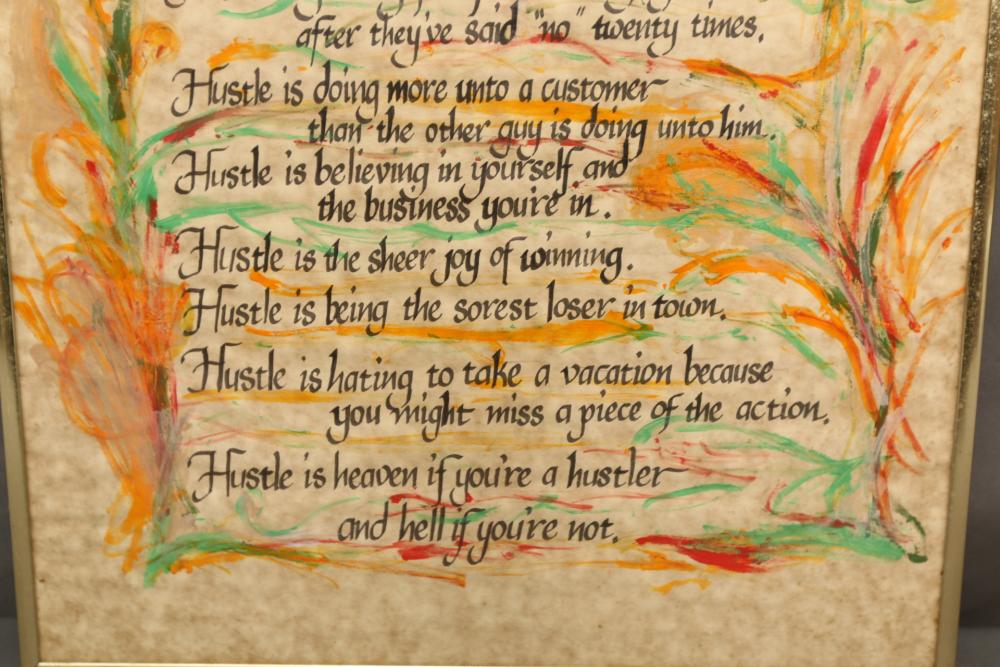 after they've said "no" twenty times.
Hustle is doing more unto a customer
than the other guy is doing unto him.
Hustle is believing in yourself and
the business you're in.
Hustle is the sheer joy of winning.
Hustle is being the sorest loser in town.
Hustle is hating to take a vacation because
you might miss a piece of the action.
Hustle is heaven if you're a hustler
and hell if you're not.